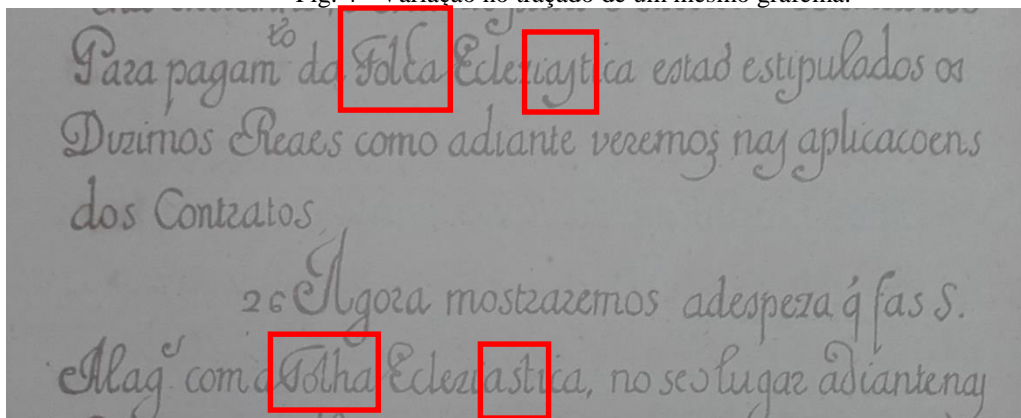 Fig. 4 – Variação no traçado de um mesmo grafema.
Para pagam^to da Folha Ecleziastica estaõ estipulados os
Dizimos e Reaes como adiante veremos nas aplicacoens
dos Contratos
26 Agora mostraremos adespeza q̃ fas S.
Mag^e com a Folha Ecleziastica, no seo lugar adiante nas